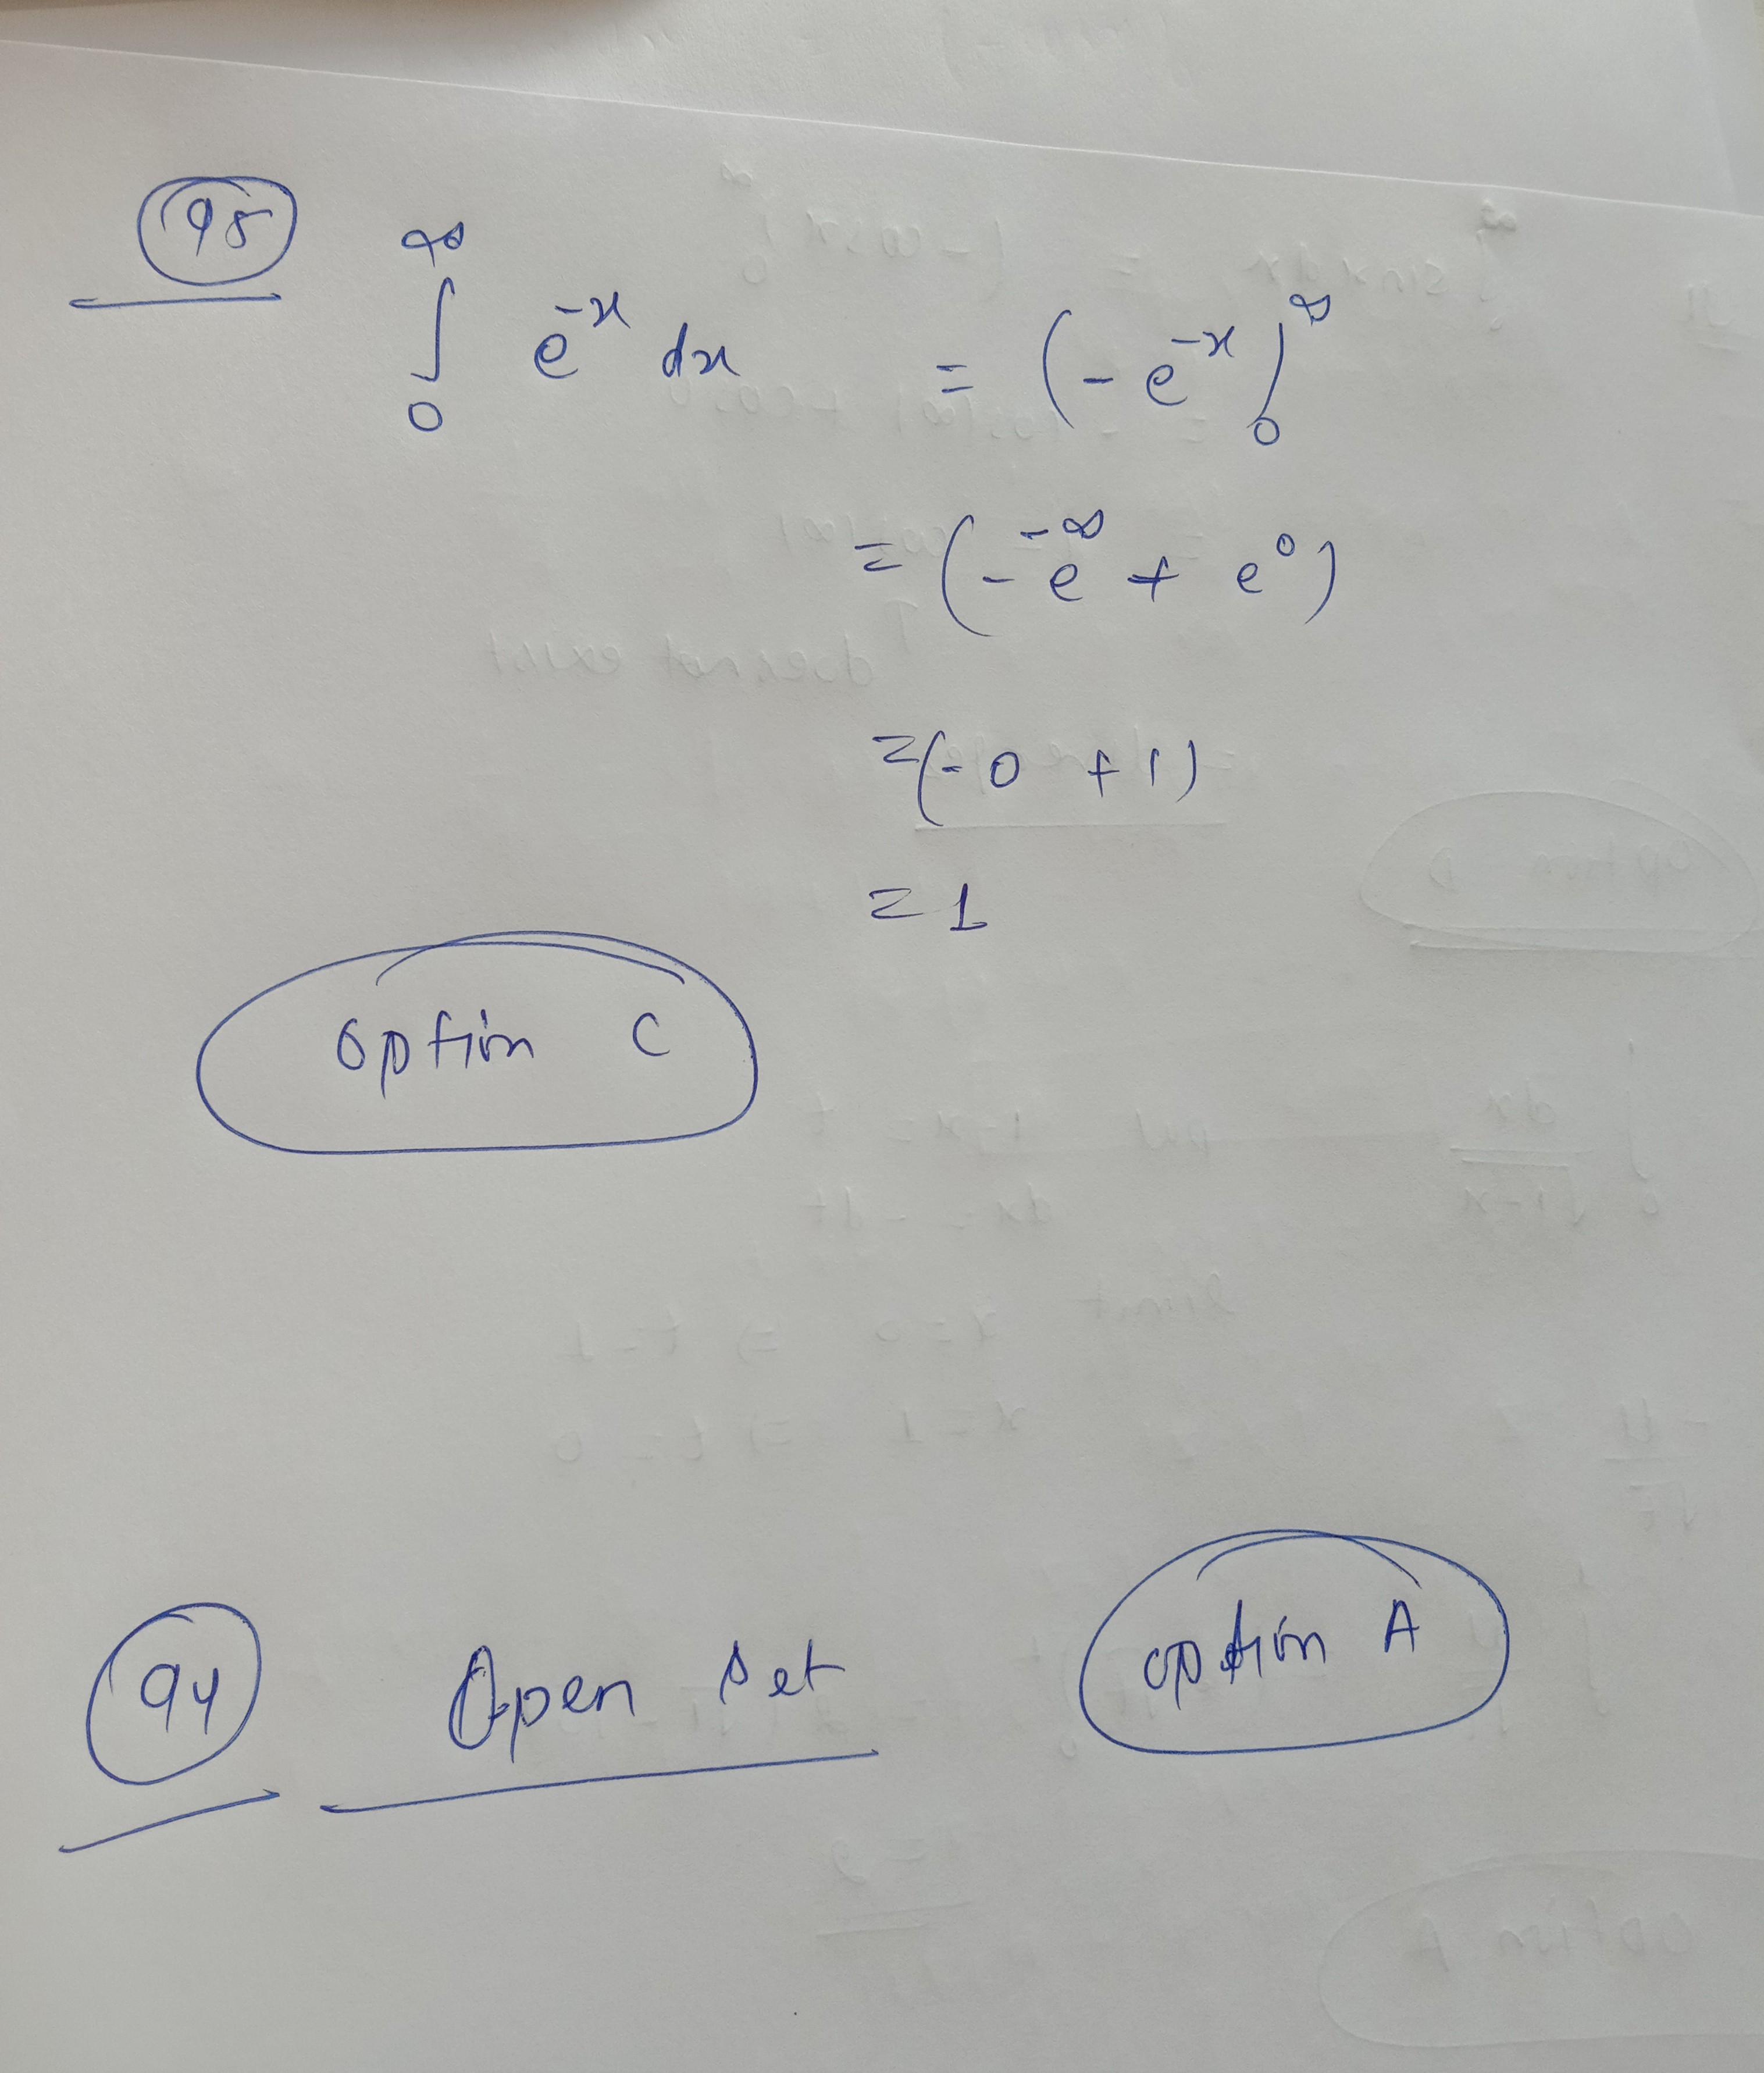 95
∞
∫ e^-x dx = (-e^-x)_0^∞
0
= (-e^-∞ + e^0)
= (-0 + 1)
= 1
Option C
94 Open set option A